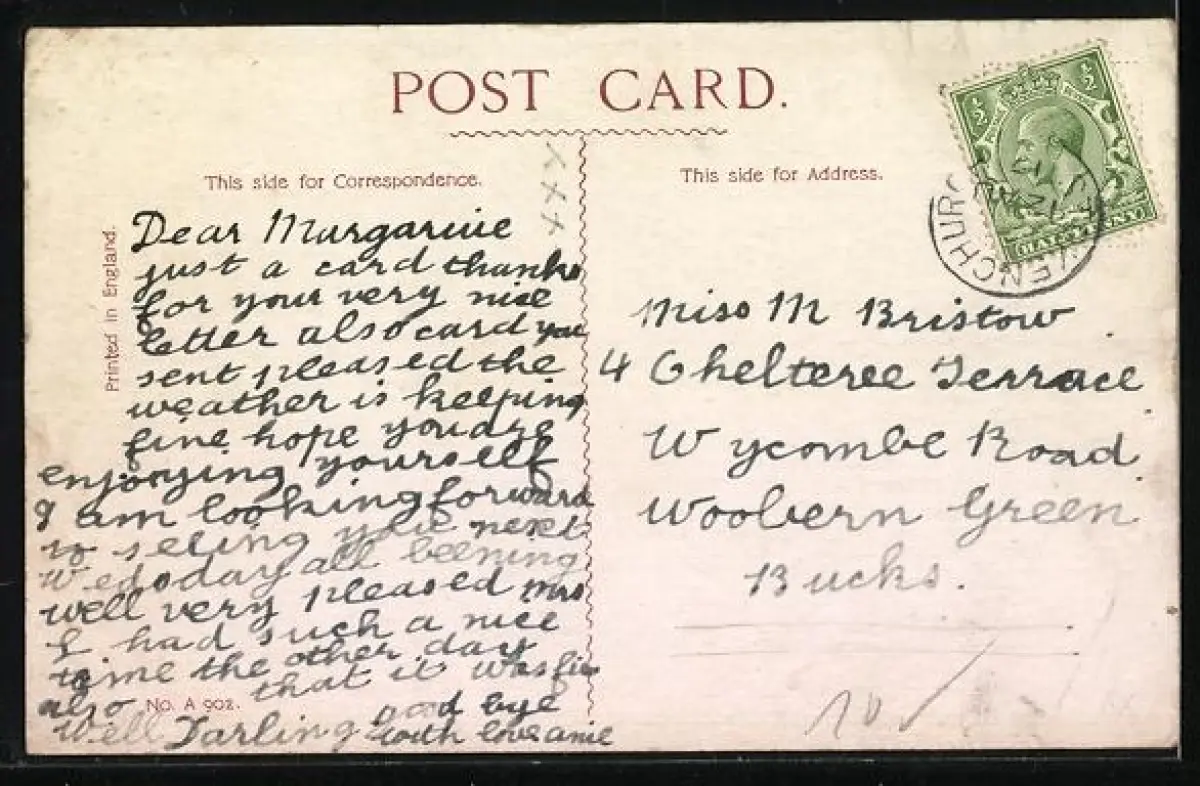 POST CARD.
This side for Correspondence.
This side for Address.
Printed in England.
Dear Margarine
just a card thanks
for your very nice
letter also card you
sent pleased the
weather is keeping
fine hope you are
enjoying yourself
I am looking forward
to seeing you next
Wedsday all beening
well very pleased Mrs
L had such a nice
time the other day
also that it was fin
No. A 902.
Well Darling good bye
with love amie
xxx
½ ½
HALFPENNY
Miss M Bristow
4 Terrace
Wycombe Road
Woobern Green
Bucks.